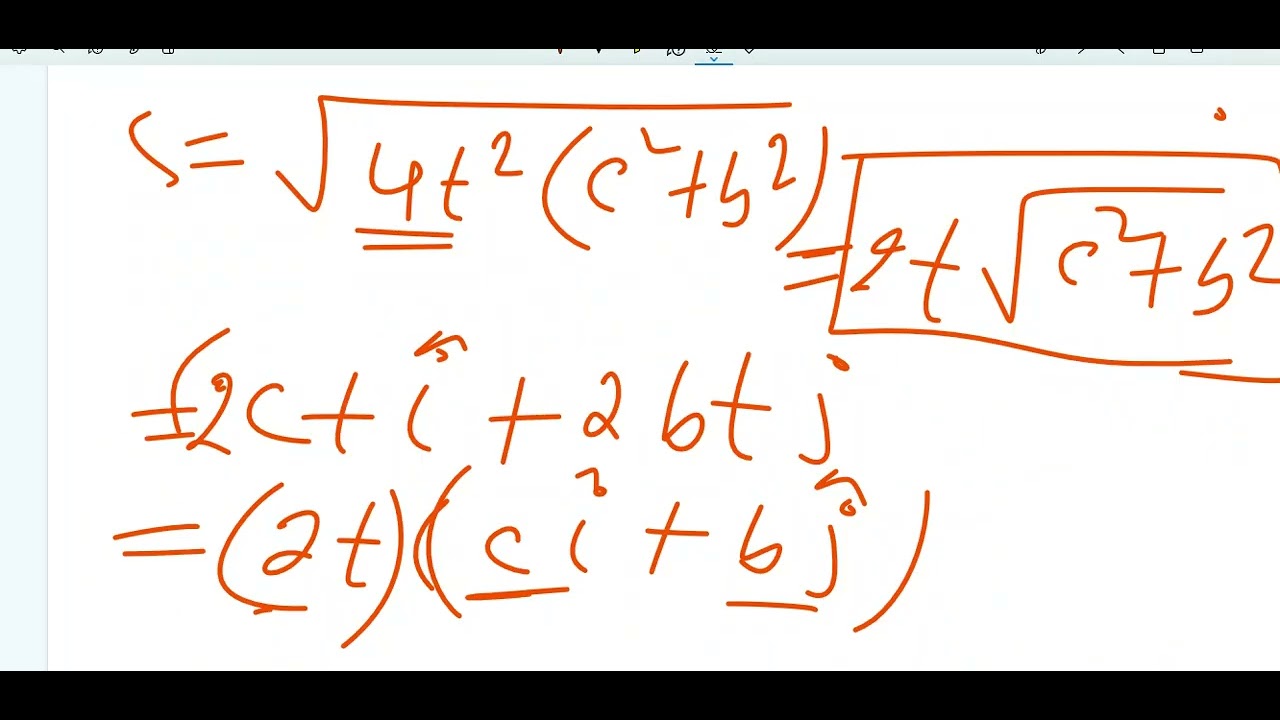 S = √4t²(c²+b²) = 2t√c²+b²
= (2ct î + 2bt j
= (2t)((c î + b ĵ)